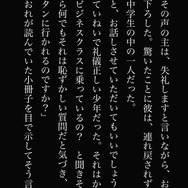 その声の主は、失礼しますと言いながら、お
下ろした。驚いたことに彼は、連れ戻されず
中学生の中の一人だった。
と、お話しさせていただいてもいいでしょう
ていねいで礼儀正しい少年だった。それはか
ビジネスクラスに乗っているの？ と聞きそ
ら何でもそれは恥ずかしい質問だと気づき、
タンに行かれるのですか？」
おれが読んでいた小冊子を目で示してそう言